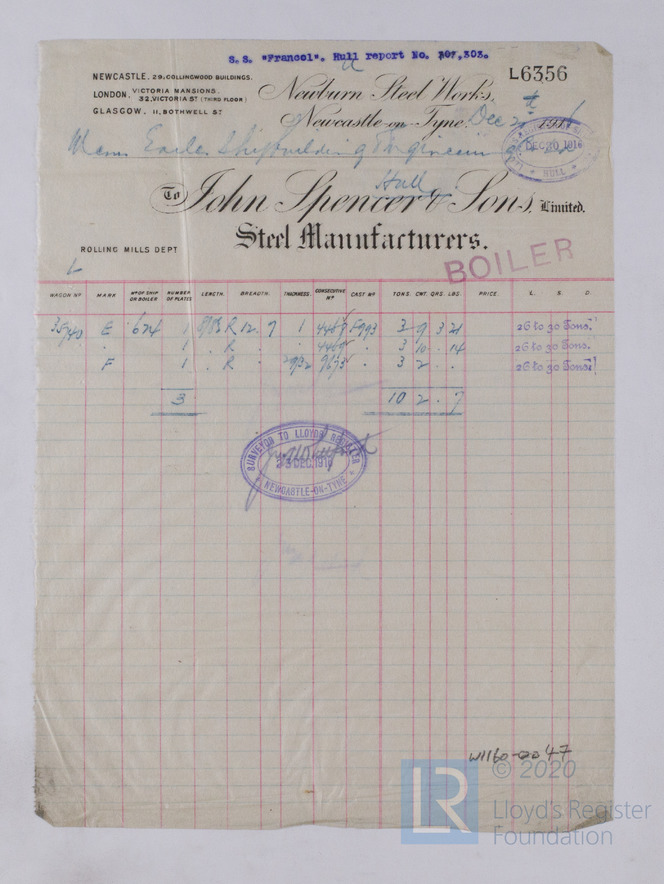 S.S. "Francol". Hull report No. 307,303.
L6356
NEWCASTLE, 29, COLLINGWOOD BUILDINGS.
LONDON, VICTORIA MANSIONS, 32, VICTORIA ST (THIRD FLOOR)
GLASGOW, 11, BOTHWELL ST
Newburn Steel Works,
Newcastle-on-Tyne, Dec
DEC 30 1916
HULL
Messrs Earles Shipbuilding & Engineering
Hull
To John Spencer & Sons, Limited.
Steel Manufacturers.
ROLLING MILLS DEPT
BOILER
WAGON No MARK No OF SHIP OR BOILER NUMBER OF PLATES LENGTH. BREADTH. THICKNESS CONSECUTIVE No CAST No TONS. CWT. QRS. LBS. PRICE. £. S. D.
35740 E 674 1 R 12. 7 1 5993 3 9 3 21 26 to 30 Tons.
" . 1 . R . 3 10 . 14 26 to 30 Tons.
F 1 . R 29/32 . 3 2 . . 26 to 30 Tons.
3 10 2 . 7
SURVEYOR TO LLOYDS REGISTER
23 DEC. 1916
NEWCASTLE-ON-TYNE
W1160-0047
© 2020
LR
Lloyd's Register
Foundation